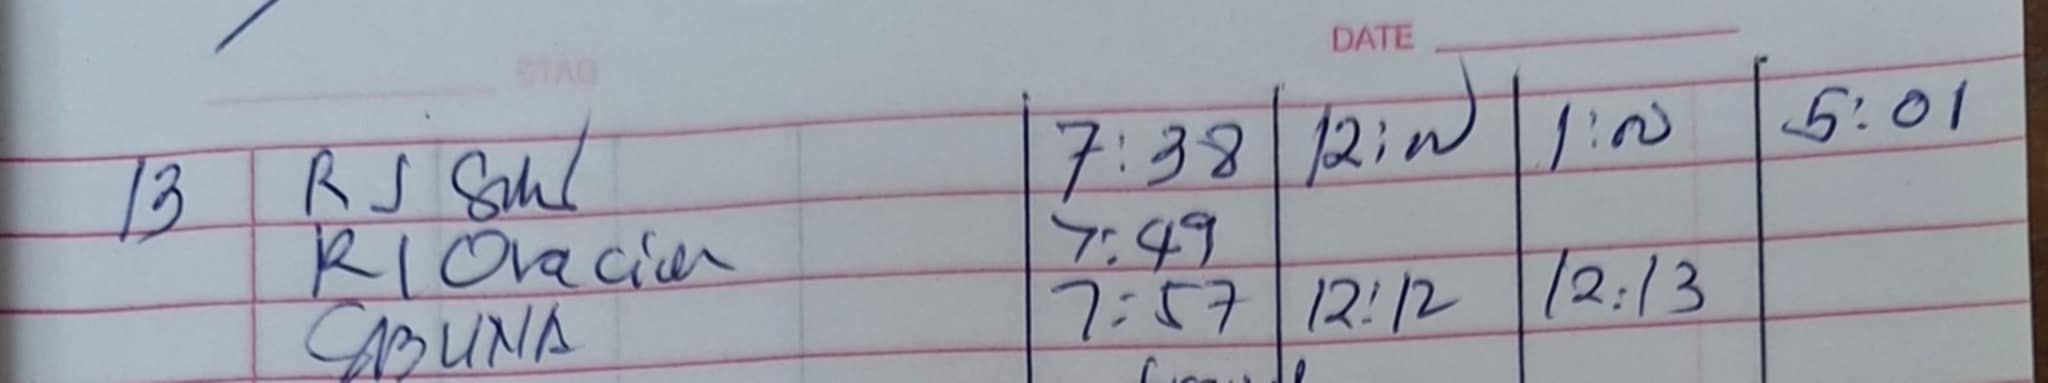 DATE
13 RJ 7:38 12:00 1:00 5:01
RJ Oracion 7:49
CABUNA 7:57 12:12 12:13